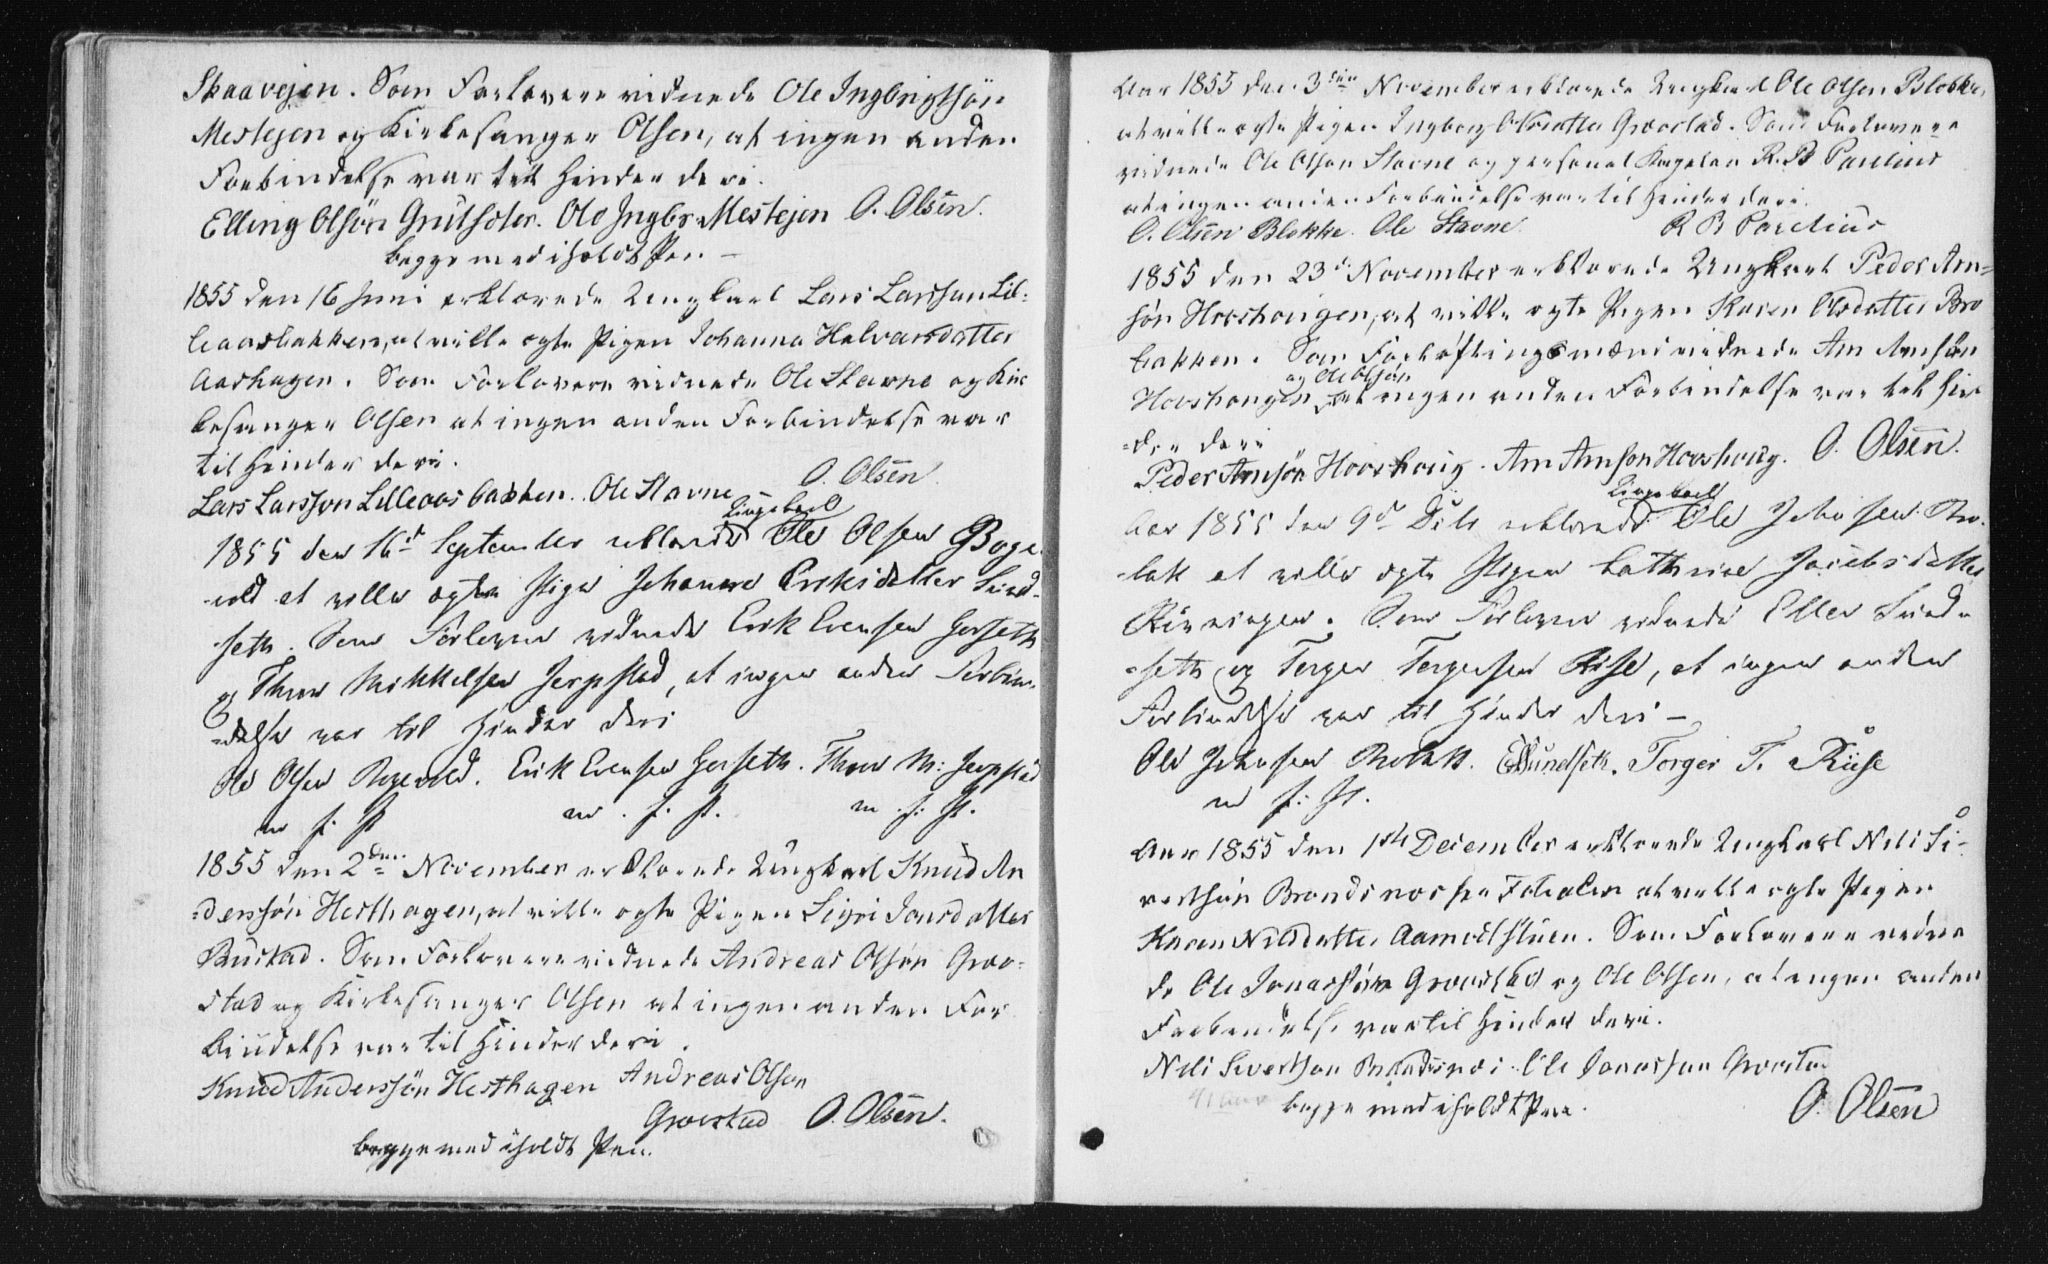 Skaavejen. Som Forlovere vidnede Ole Ingbrigtsön
Mestejen og Kirkesanger Olsen, at ingen anden
Forbindelse var til Hinder deri.
Elling Olsön Grutseter. Ole Ingbr. Mestejen O. Olsen.
begge med iholdt Pen –
1855 den 16 Juni erklærede Ungkarl Lars Larsson Lil-
leaasbakken, at ville ægte Pigen Johanna Halvarsdatter
Aashagen. Som Forlovere vidnede Ole Stavne og Kir
kesanger Olsen at ingen anden Forbindelse var
til Hinder deri.
Lars Larsson Lilleaasbakken. Ole Stavne O. Olsen
Ungkarl
1855 den 16d September erklærede Ole Olsen Bøge
vold at ville ægte Pige Johanne Eriksdatter Sund-
seth. Som Forlovere vidnede Erik Evensen Gorseth
og Thore Mikkelsen Jerpstad, at ingen anden Forbin-
delse var til Hinder deri
Ole Olsen Bøgevold. Erik Evensen Gorseth. Thore M: Jerpstad
m f. P m. f. P. m. f. P.
1855 den 2den November erklærede Ungkarl Knud An
derssön Hesthagen, at ville ægte Pigen Sigri Jonsdatter
Bustad. Som Forlovere vidnede Andreas Olsön Græv-
stad og Kirkesanger Olsen at ingen anden For
bindelse var til Hinder deri.
Knud Anderssön Hesthagen Andreas Olson
Grævstad O. Olsen.
begge med iholdt Pen.
Aar 1855 den 3die November erklærede Ungkarl Ole Olsen Blokke,
at ville ægte Pigen Ingborg Olsdatter Grævstad. Som Forlovere
vidnede Ole Olsen Stavne og personel Kapelan R. B Parelius
at ingen anden Forbindelse var til Hinder deri.
O. Olsen Blokke. Ole Stavne. R B Parelius
1855 den 23de November erklærede Ungkarl Peder Arn-
sön Hovshougen, at ville ægte Pigen Karen Olsdatter Bro
bakken. Som Forloftingsmænd vidnede Arn Arnsön
og Ole Olsön
Hovshougen, at ingen anden Forbindelse var til Hin
der deri
Peder Arnsön Hovshoug. Arn Arnson Hovshoug. O. Olsen.
Ungkarl
Aar 1855 den 9d Dcbr erklærede Ole Johnsen
at ville ægte Pigen Cathrine Jacobsdatter
Rønningen. Som Forlovere vidnede Eller Sund-
seth og Torger Torgersen Riise, at ingen anden
Forbindelse var til Hinder deri –
Ole Johnsen ESundseth. Torger T. Riise
m f. P.
Aar 1855 den 1ste December erklærede Ungkarl Nils Si-
vertsön Brandsnos fra at ville ægte Pigen
Karen Nilsdatter Aamotstuen. Som Forlovere vidne
de Ole Jonassön Grævstad og Ole Olsen, at ingen anden
Forbindelse var til Hinder deri.
Nils Sivertson Brandsnos. Ole Jonasson Grævstad
begge med iholdt Pen. O. Olsen